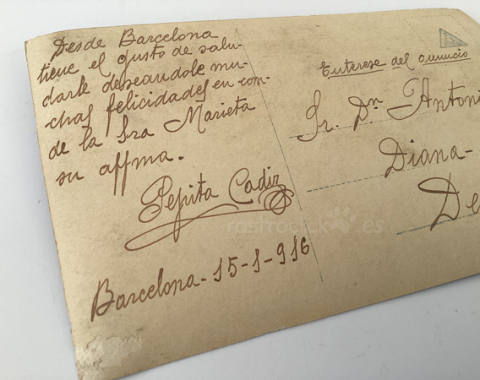 Desde Barcelona
tiene el gusto de salu-
darle deseandole mu-
chas felicidades en com-
de la Sra Marieta
su affma.
Pepita Cadiz
Barcelona-15-1-916
Enterese del anuncio
Sr. Dn Antoni
Diana-
De
rastro.es